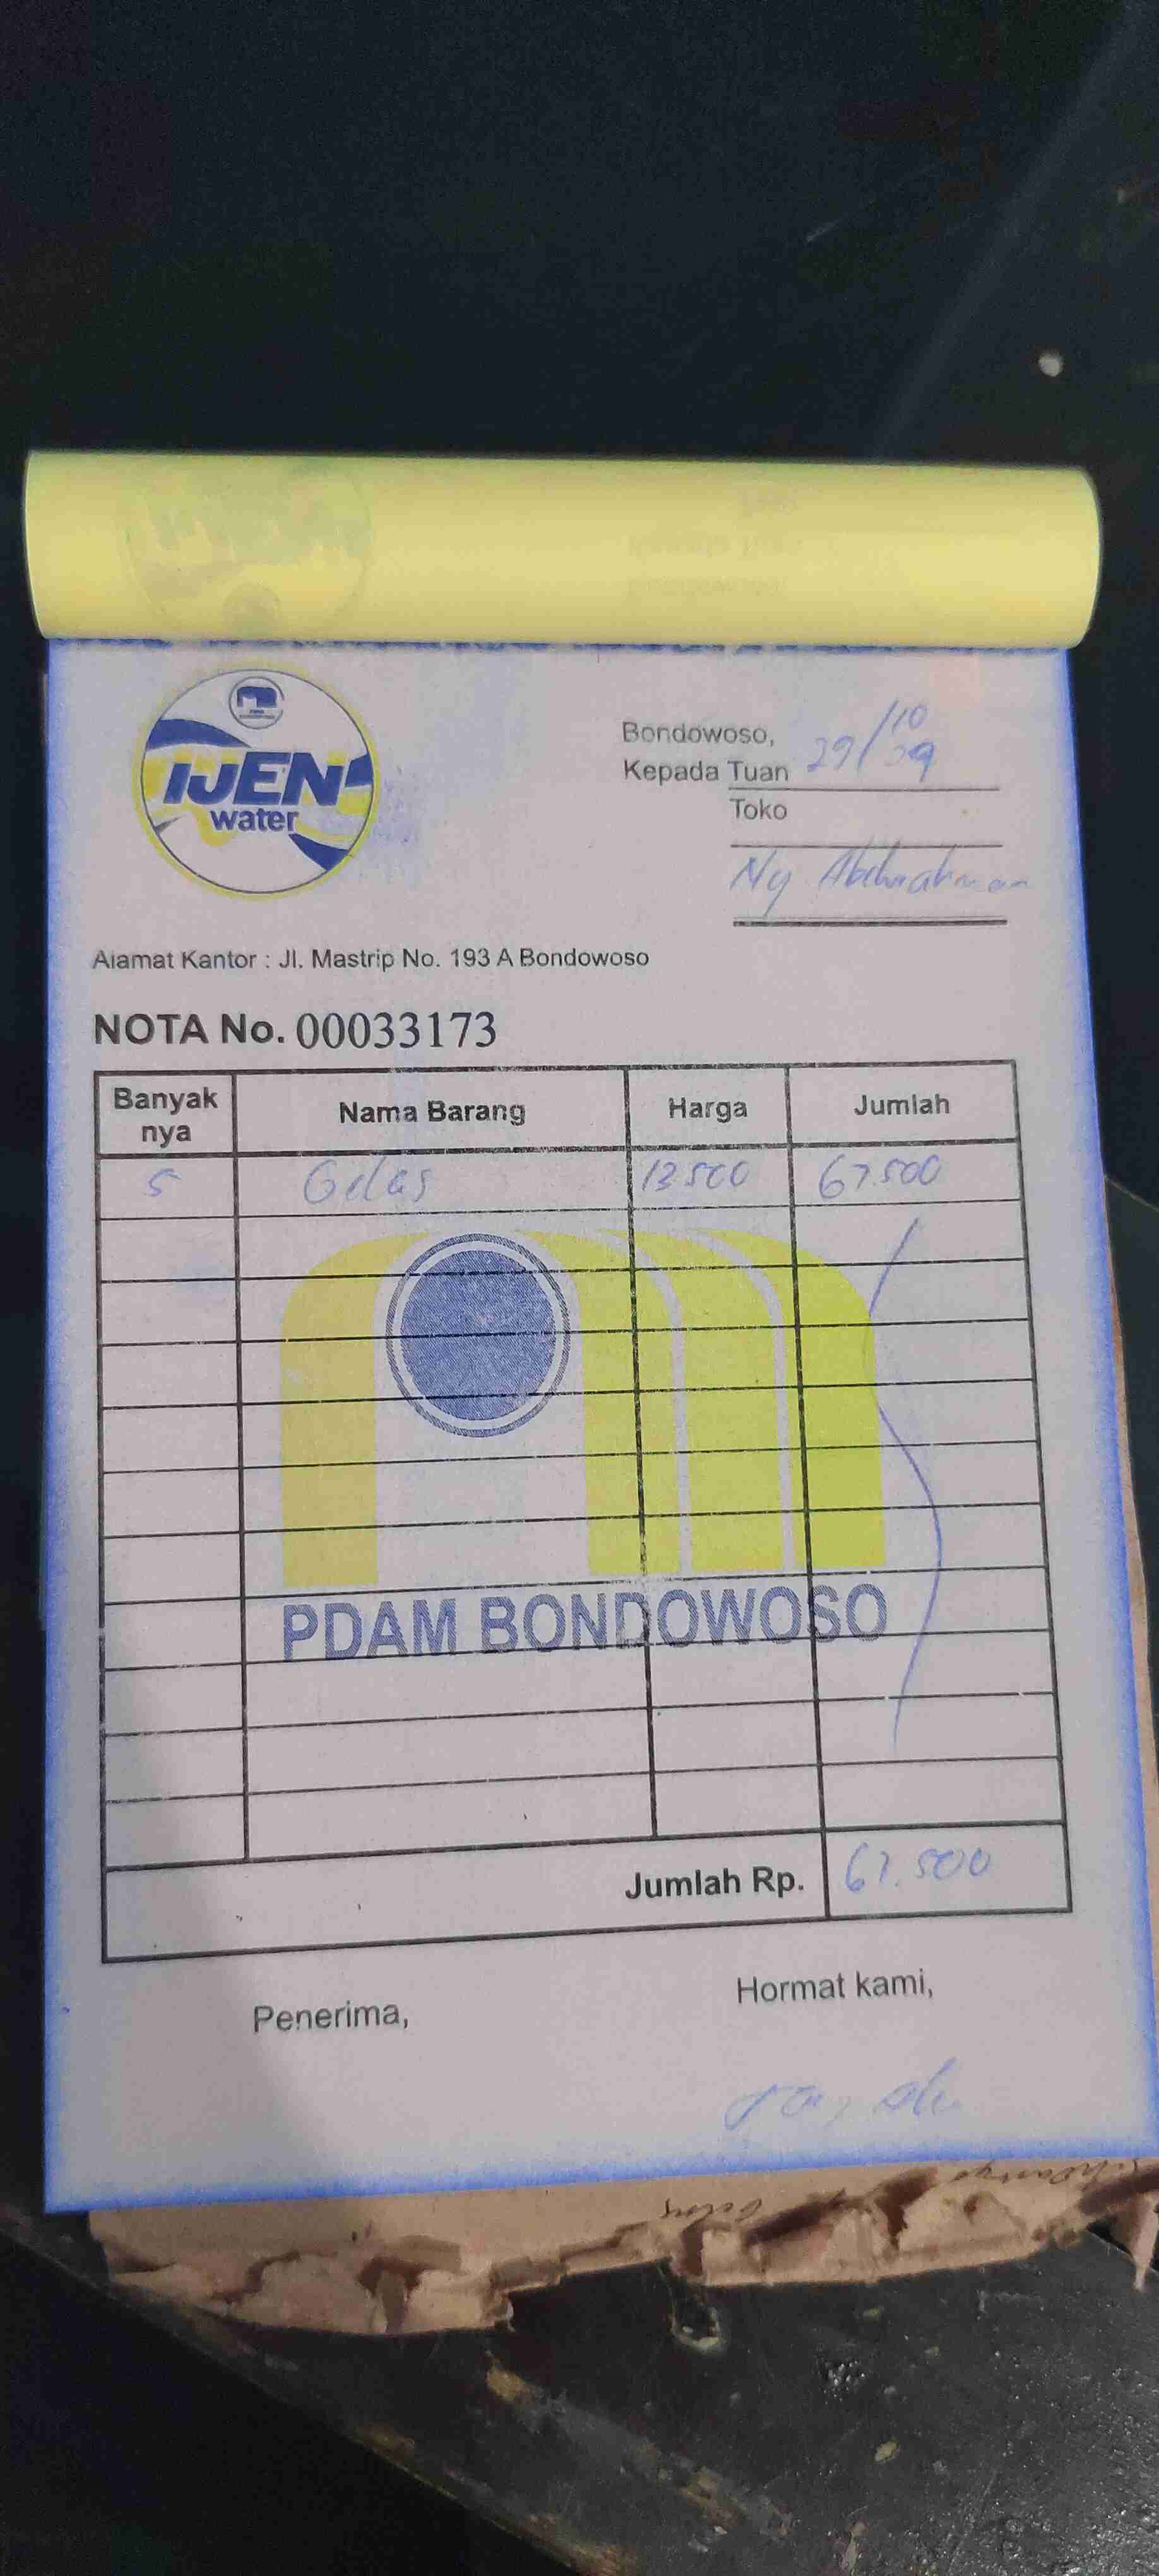 IJEN
water
Bondowoso,
29/10
Kepada Tuan
Toko
Ny Abdurahman
Alamat Kantor : Jl. Mastrip No. 193 A Bondowoso
NOTA No. 00033173
Banyak nya Nama Barang Harga Jumlah
5 Gelas 13500 67.500
PDAM BONDOWOSO
Jumlah Rp. 67.500
Penerima, Hormat kami,